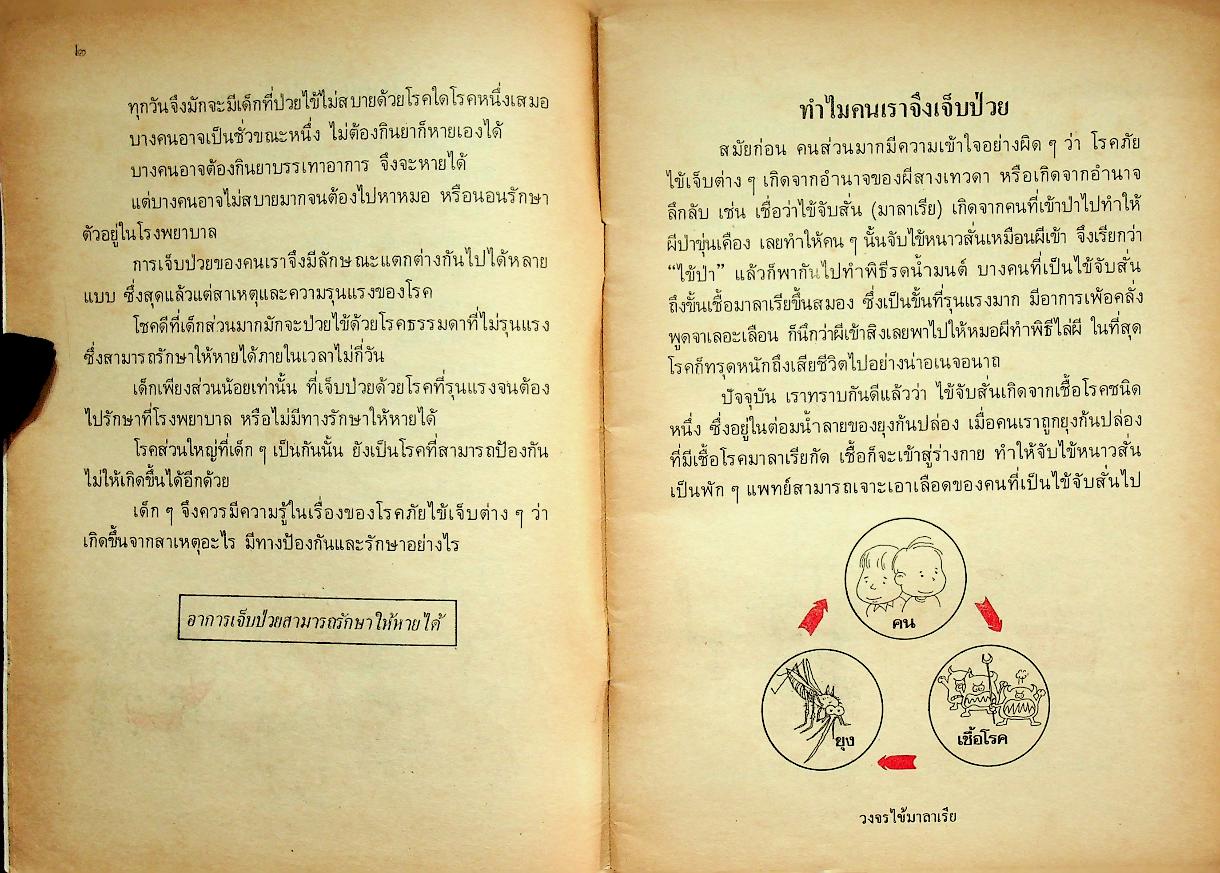 ๒
ทุกวันจึงมักจะมีเด็กที่ป่วยไข้ไม่สบายด้วยโรคใดโรคหนึ่งเสมอ
บางคนอาจเป็นชั่วขณะหนึ่ง ไม่ต้องกินยาก็หายเองได้
บางคนอาจต้องกินยาบรรเทาอาการ จึงจะหายได้
แต่บางคนอาจไม่สบายมากจนต้องไปหาหมอ หรือนอนรักษา
ตัวอยู่ในโรงพยาบาล
การเจ็บป่วยของคนเราจึงมีลักษณะแตกต่างกันไปได้หลาย
แบบ ซึ่งสุดแล้วแต่สาเหตุและความรุนแรงของโรค
โชคดีที่เด็กส่วนมากมักจะป่วยไข้ด้วยโรคธรรมดาที่ไม่รุนแรง
ซึ่งสามารถรักษาให้หายได้ภายในเวลาไม่กี่วัน
เด็กเพียงส่วนน้อยเท่านั้น ที่เจ็บป่วยด้วยโรคที่รุนแรงจนต้อง
ไปรักษาที่โรงพยาบาล หรือไม่มีทางรักษาให้หายได้
โรคส่วนใหญ่ที่เด็ก ๆ เป็นกันนั้น ยังเป็นโรคที่สามารถป้องกัน
ไม่ให้เกิดขึ้นได้อีกด้วย
เด็ก ๆ จึงควรมีความรู้ในเรื่องของโรคภัยไข้เจ็บต่าง ๆ ว่า
เกิดขึ้นจากสาเหตุอะไร มีทางป้องกันและรักษาอย่างไร
อาการเจ็บป่วยสามารถรักษาให้หายได้
ทำไมคนเราจึงเจ็บป่วย
สมัยก่อน คนส่วนมากมีความเข้าใจอย่างผิด ๆ ว่า โรคภัย
ไข้เจ็บต่าง ๆ เกิดจากอำนาจของผีสางเทวดา หรือเกิดจากอำนาจ
ลึกลับ เช่น เชื่อว่าไข้จับสั่น (มาลาเรีย) เกิดจากคนที่เข้าป่าไปทำให้
ผีป่าขุ่นเคือง เลยทำให้คน ๆ นั้นจับไข้หนาวสั่นเหมือนผีเข้า จึงเรียกว่า
“ไข้ป่า” แล้วก็พากันไปทำพิธีรดน้ำมนต์ บางคนที่เป็นไข้จับสั่น
ถึงขั้นเชื้อมาลาเรียขึ้นสมอง ซึ่งเป็นขั้นที่รุนแรงมาก มีอาการเพ้อคลั่ง
พูดจาเลอะเลือน ก็นึกว่าผีเข้าสิงเลยพาไปให้หมอผีทำพิธีไล่ผี ในที่สุด
โรคก็ทรุดหนักถึงเสียชีวิตไปอย่างน่าอเนจอนาถ
ปัจจุบัน เราทราบกันดีแล้วว่า ไข้จับสั่นเกิดจากเชื้อโรคชนิด
หนึ่ง ซึ่งอยู่ในต่อมน้ำลายของยุงก้นปล่อง เมื่อคนเราถูกยุงก้นปล่อง
ที่มีเชื้อโรคมาลาเรียกัด เชื้อก็จะเข้าสู่ร่างกาย ทำให้จับไข้หนาวสั่น
เป็นพัก ๆ แพทย์สามารถเจาะเอาเลือดของคนที่เป็นไข้จับสั่นไป
คน
ยุง
เชื้อโรค
วงจรไข้มาลาเรีย